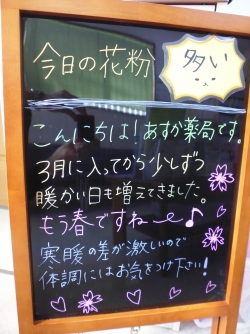 今日の花粉
多い
こんにちは!あすか薬局です。
3月に入ってから少しずつ
暖かい日も増えてきました。
もう春ですねー♪
寒暖の差が激しいので
体調にはお気をつけ下さい!